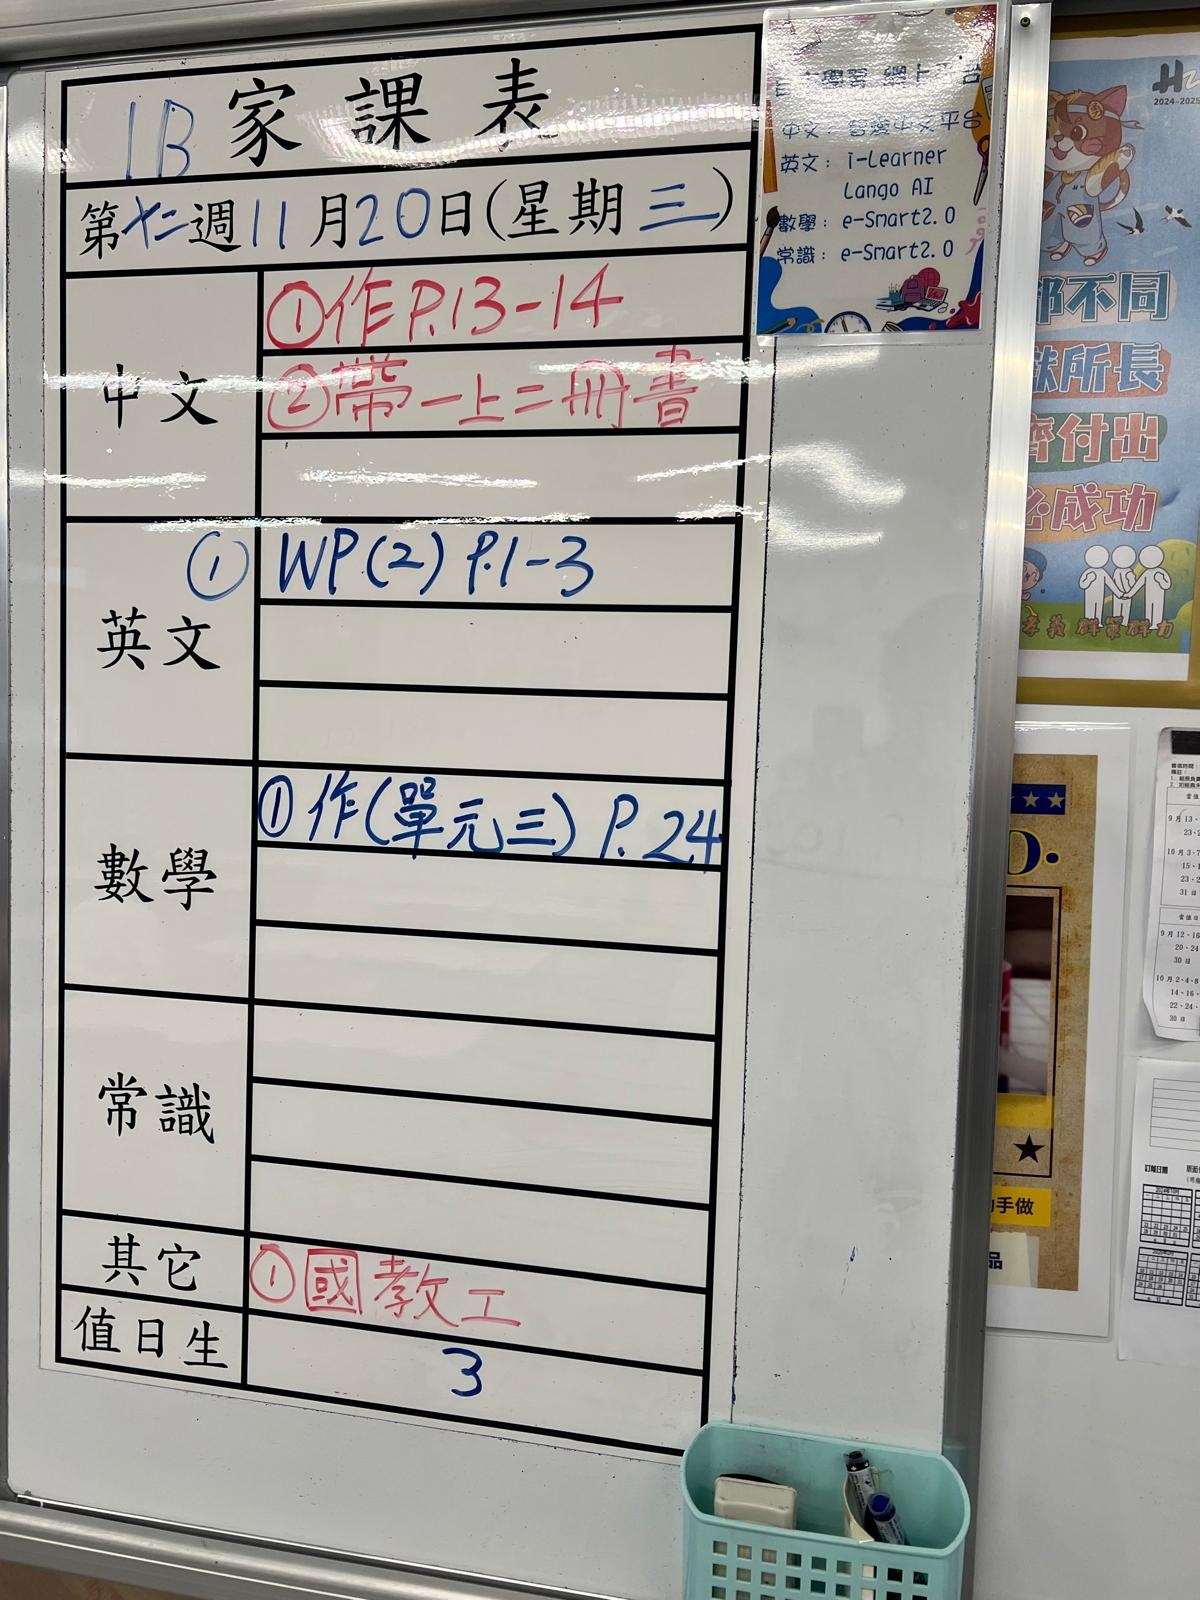 1B 家課表
第十二週11月20日(星期三)
中文
①作P.13-14
②帶一上二冊書
英文
① WP(2) P.1-3
數學
①作(單元三) P.24
常識
其它
①國教工
值日生
3
自主學習 網上平台
英文: i-Learner
Lango AI
數學: e-Smart2.0
常識: e-Smart2.0
2024-2025
不同
所長
付出
成功
手做
品
訂報日曆